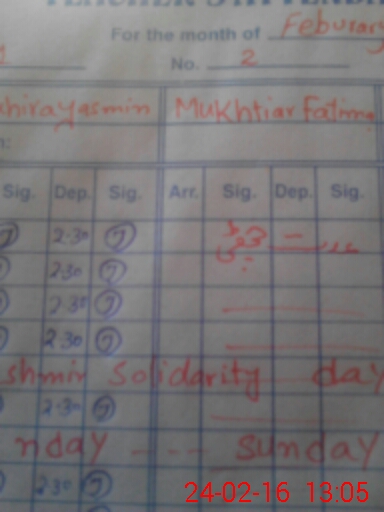 For the month of Feburary
No. 2
Mukhtiar Fatima
Sig. Dep. Sig. Arr. Sig. Dep. Sig.
2.30
2.30
2.30
2.30
shmir Solidarity day
2.30
nday ---- sunday
2.30
24-02-16 13:05